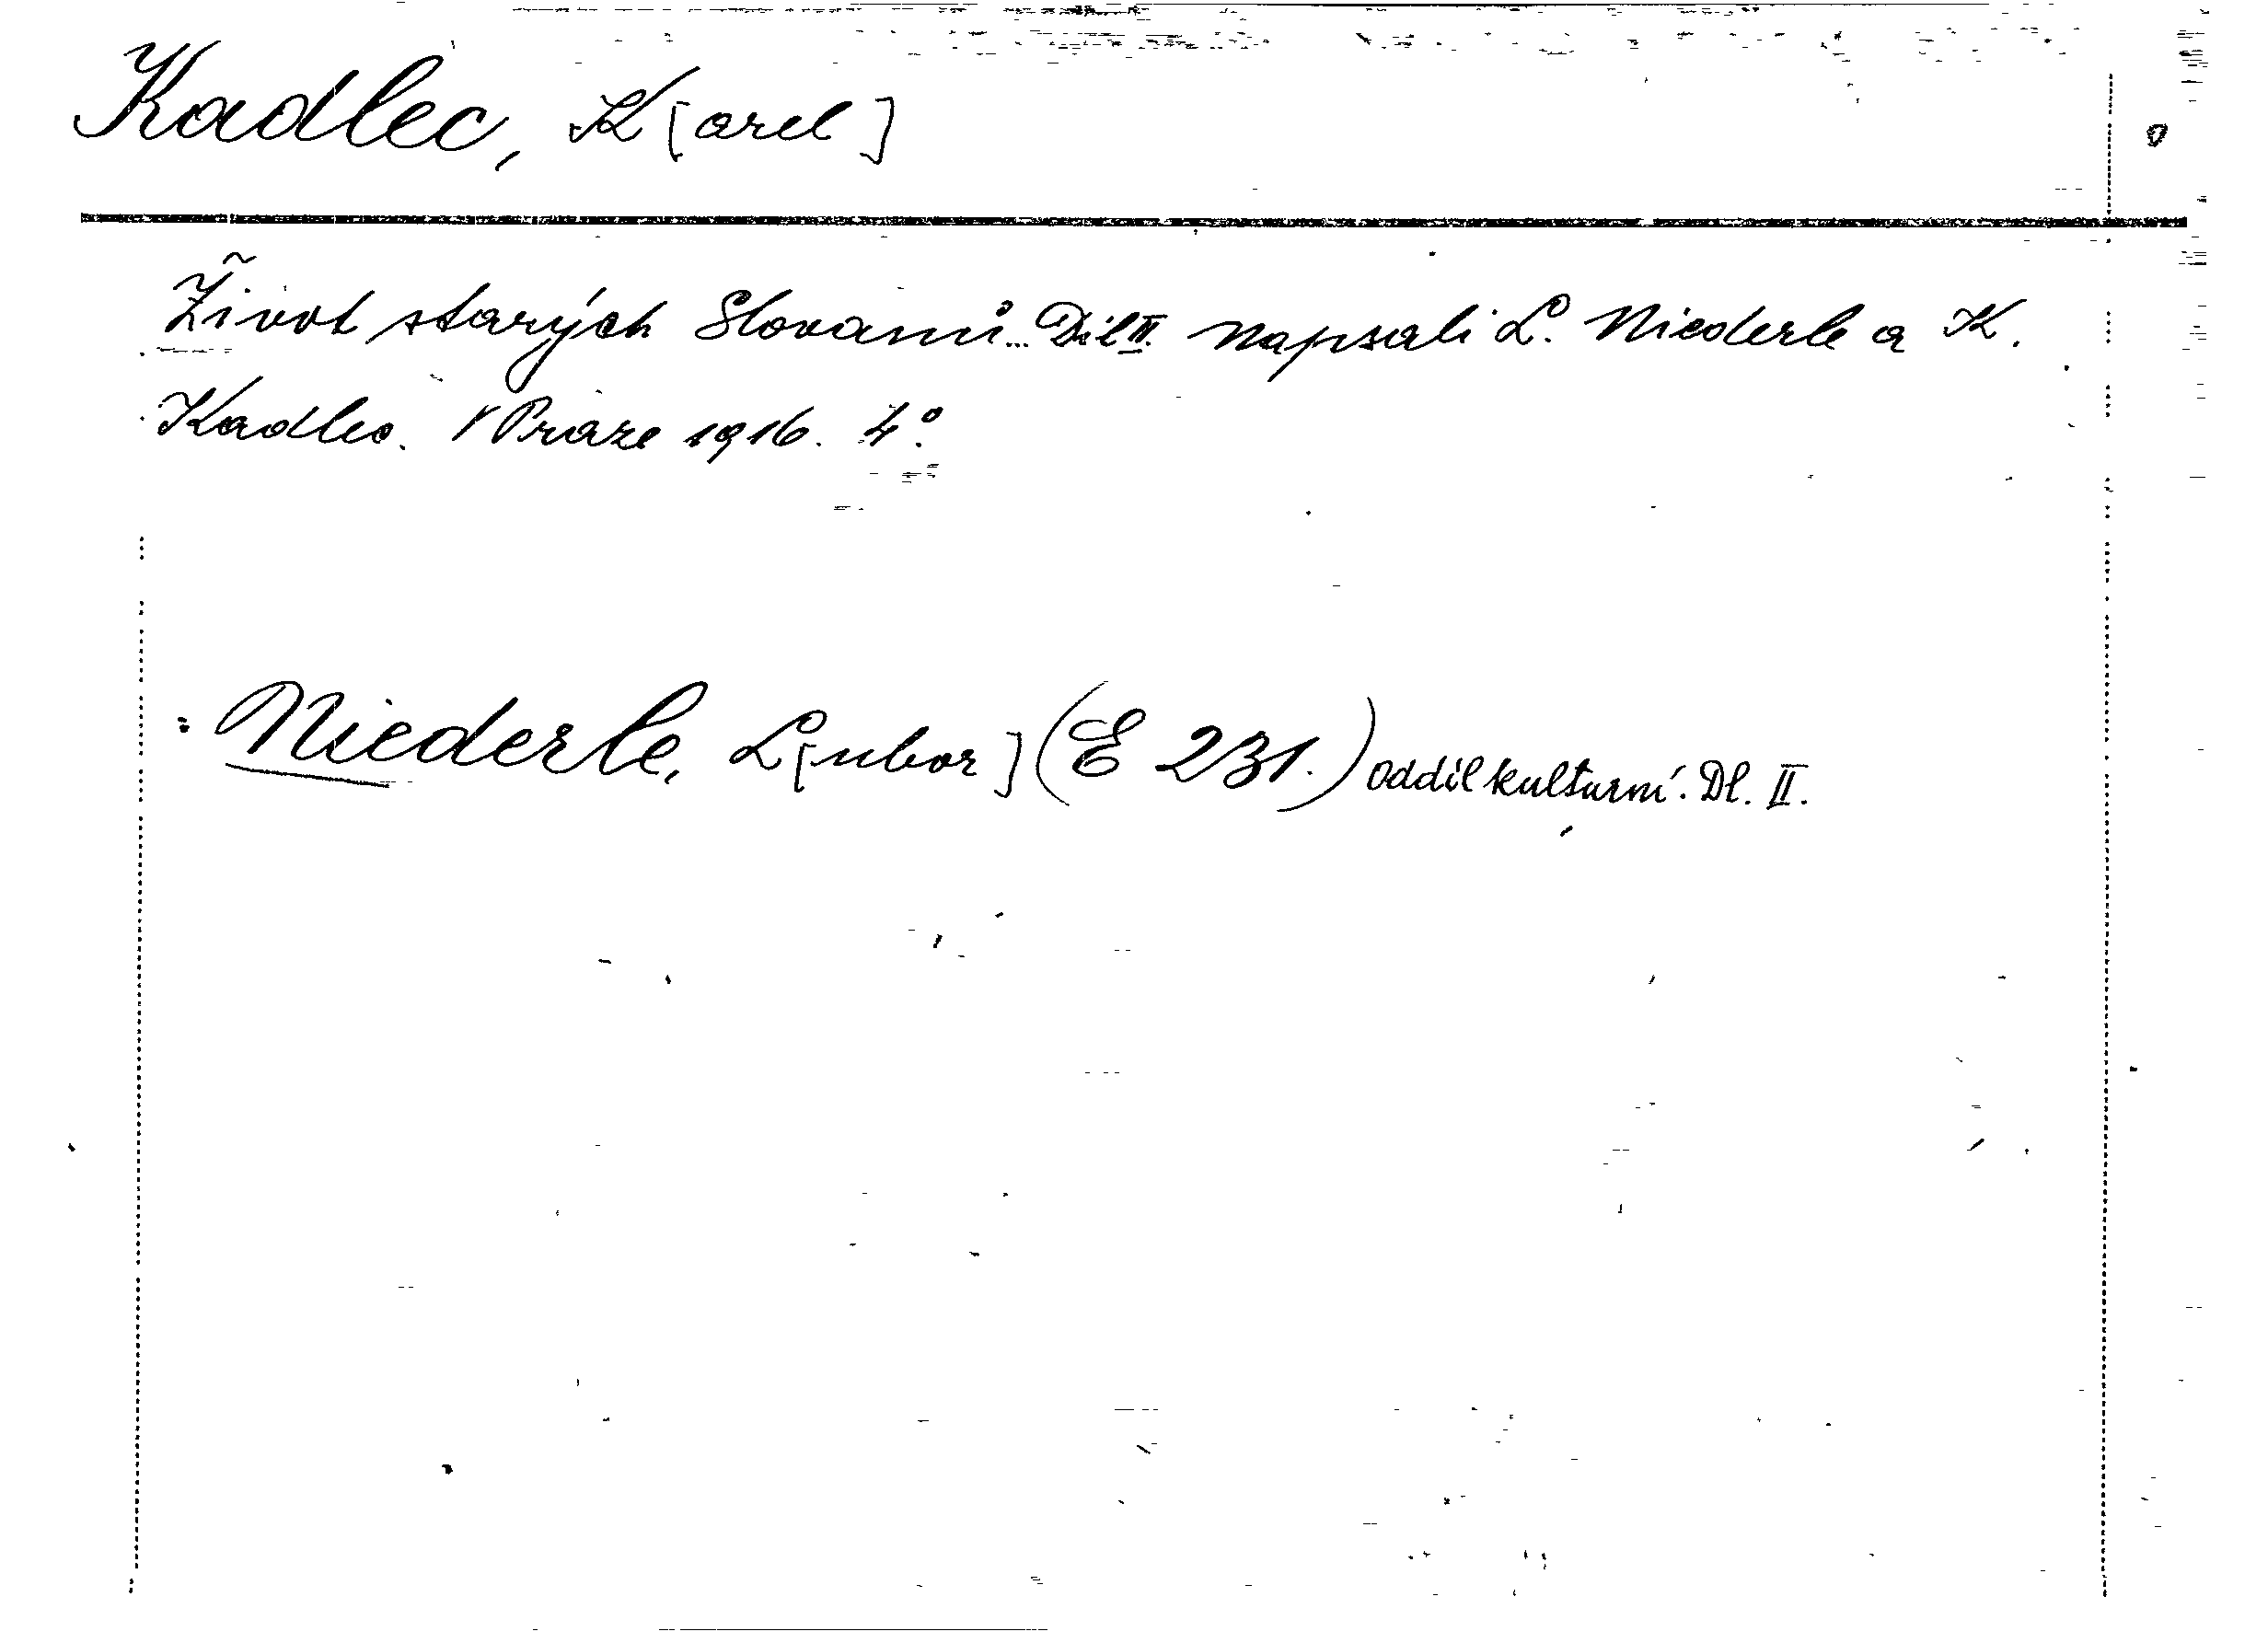 Kadlec, K[arel]
Život starých Slovanů... Díl II. Napsali L. Niederle a K.
Kadlec. V Praze 1916. 4°.
: Niederle, L[ubor] (E 231.) oddíl kulturní. Dl. II.